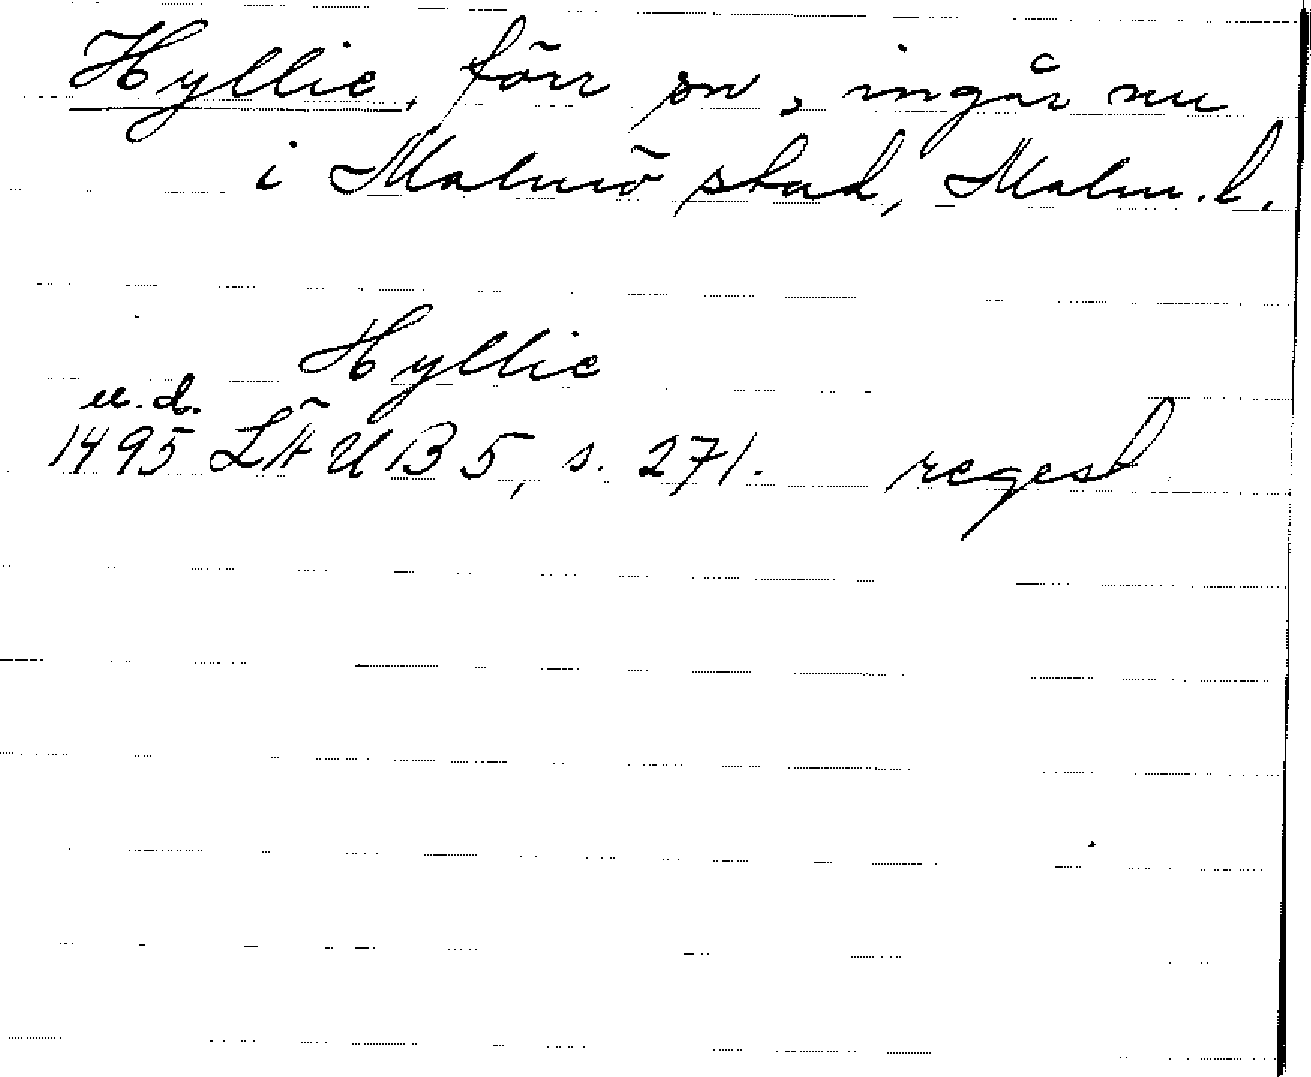 Hyllie, förr sn, ingår nu
i Malmö stad, Malm. l.
Hyllie
u.d.
1495 LÄUB 5, s. 271. regest